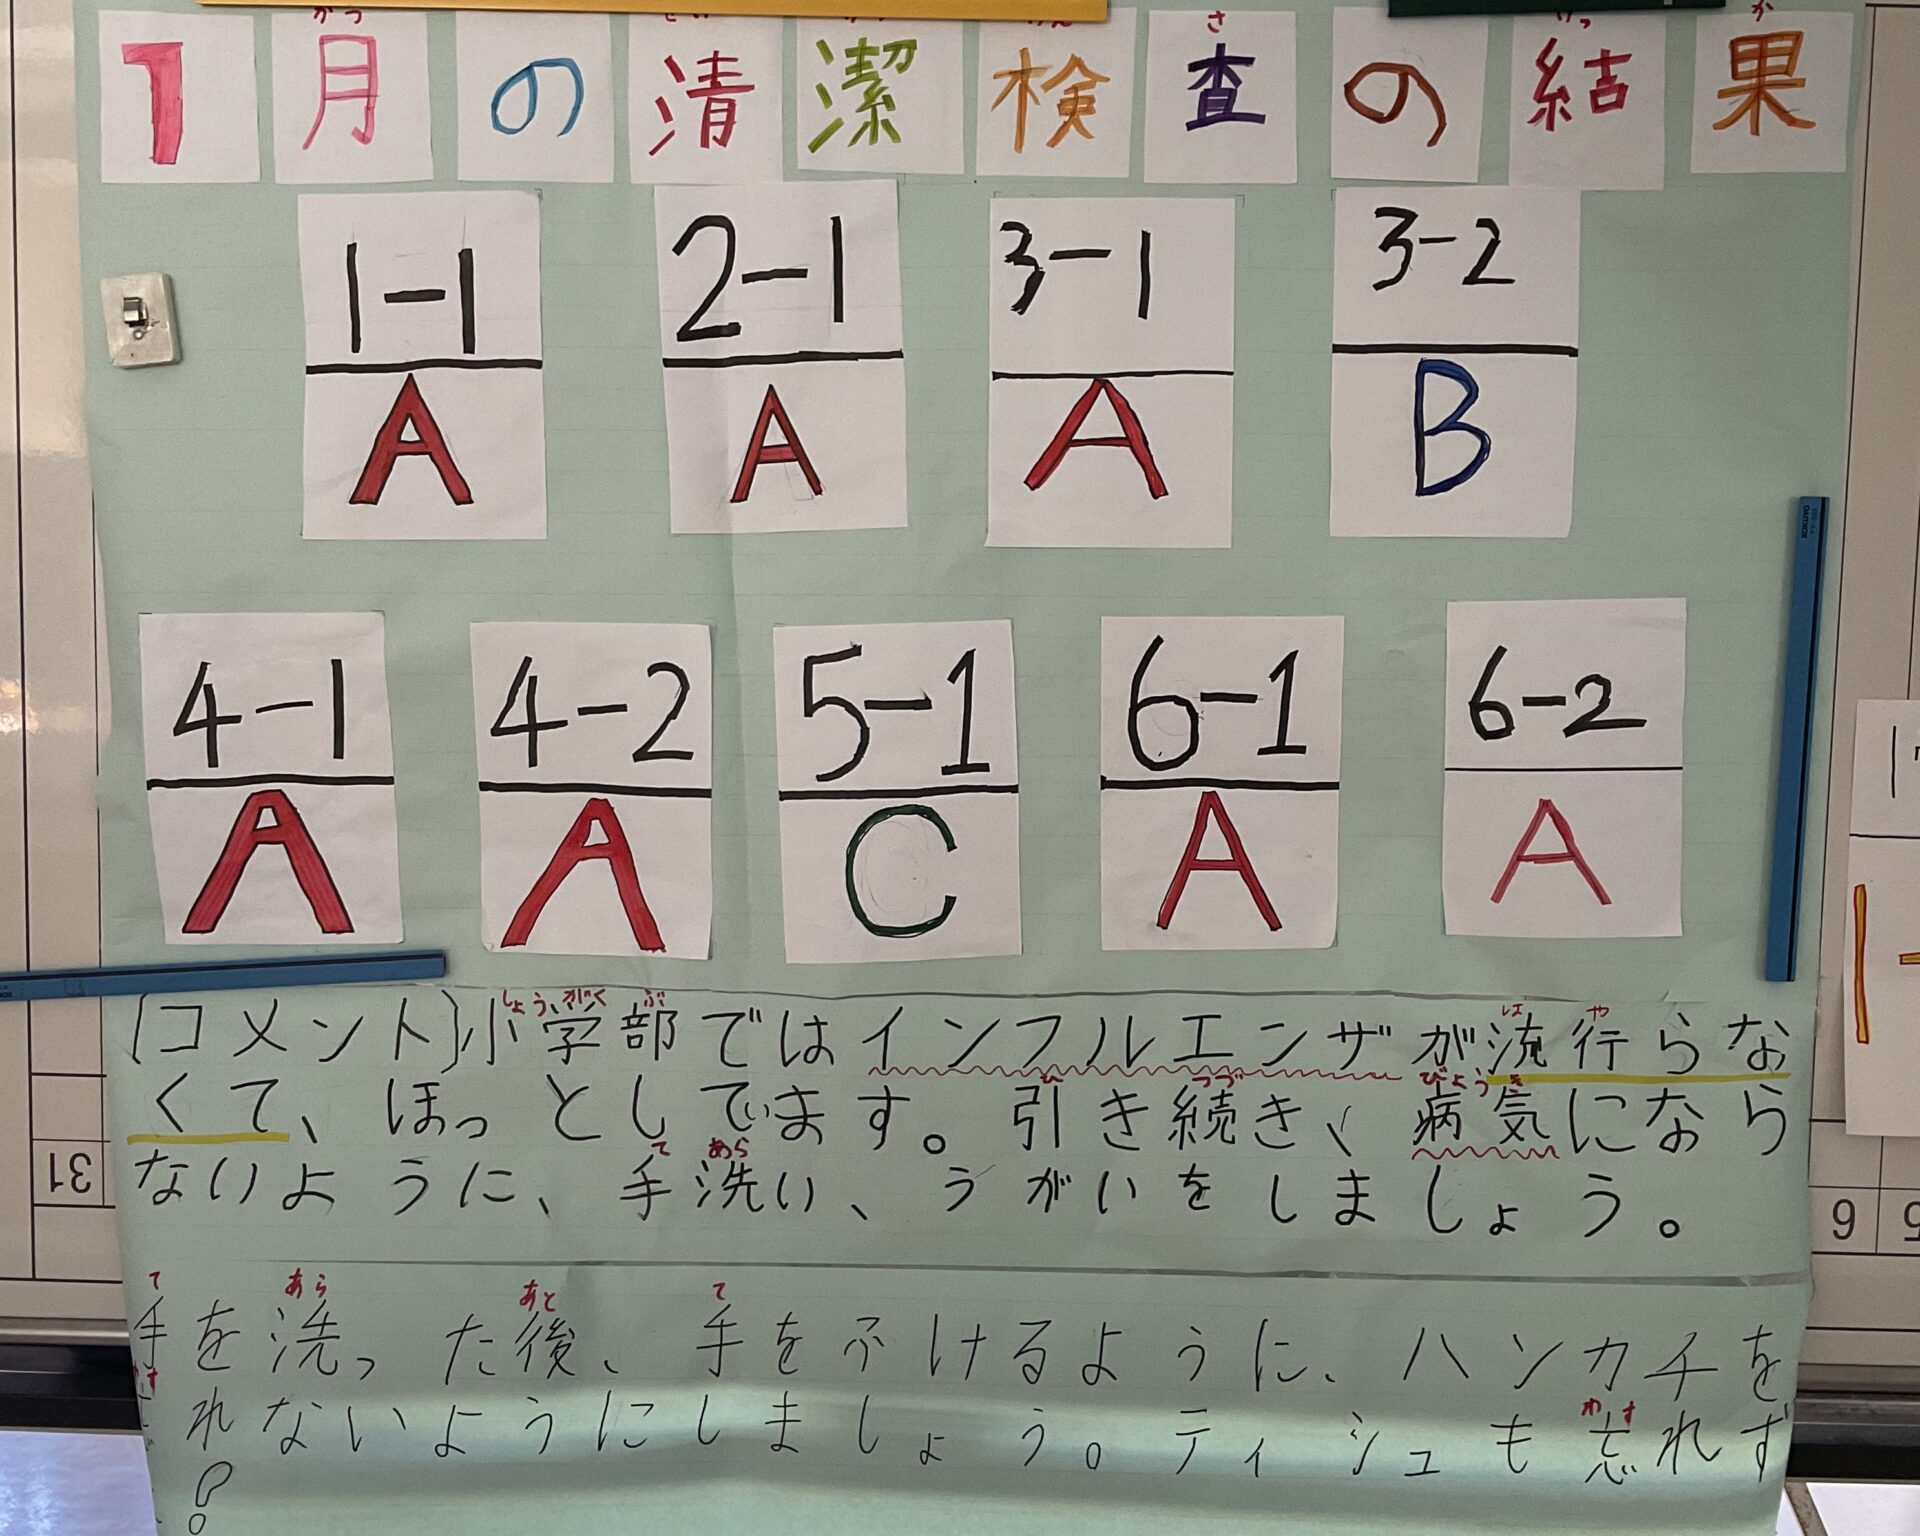 1月の清潔検査の結果
1-1 2-1 3-1 3-2
A A A B
4-1 4-2 5-1 6-1 6-2
A A C A A
[コメント]小学部ではインフルエンザが流行らな
くて、ほっとしています。引き続き、病気になら
ないように、手洗い、うがいをしましょう。
手を洗った後、手をふけるように、ハンカチを
れないようにしましょう。ティシュも忘れず
31
6